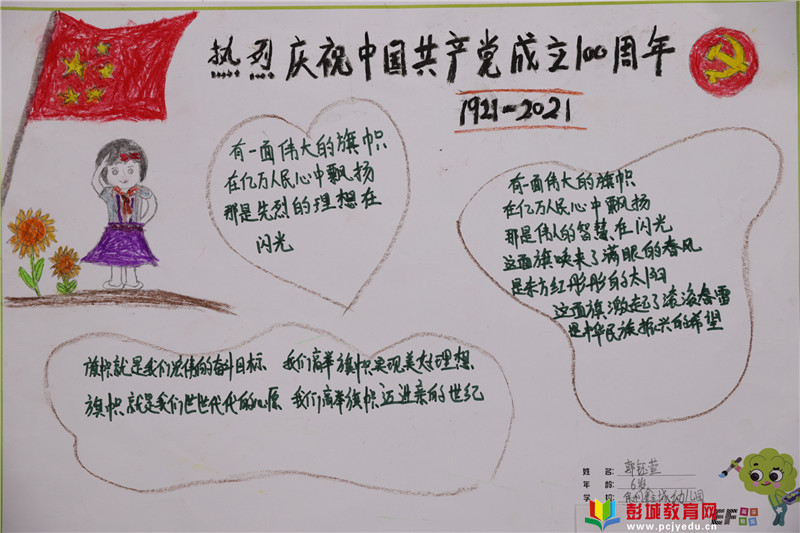 热烈庆祝中国共产党成立100周年
1921-2021
有一面伟大的旗帜
在亿万人民心中飘扬
那是先烈的理想在
闪光
有一面伟大的旗帜
在亿万人民心中飘扬
那是伟人的智慧在闪光
这面旗唤来了满眼的春风
是东方红彤彤的太阳
这面旗激起了滚滚春雷
是中华民族振兴的希望
旗帜就是我们宏伟的奋斗目标 我们高举旗帜实现美好理想
旗帜就是我们世世代代的心愿 我们高举旗帜迈进新的世纪
姓名: 郭钰萱
年龄: 6岁
学校: 幼儿园
彭城教育网
www.pcjyedu.cn
EF